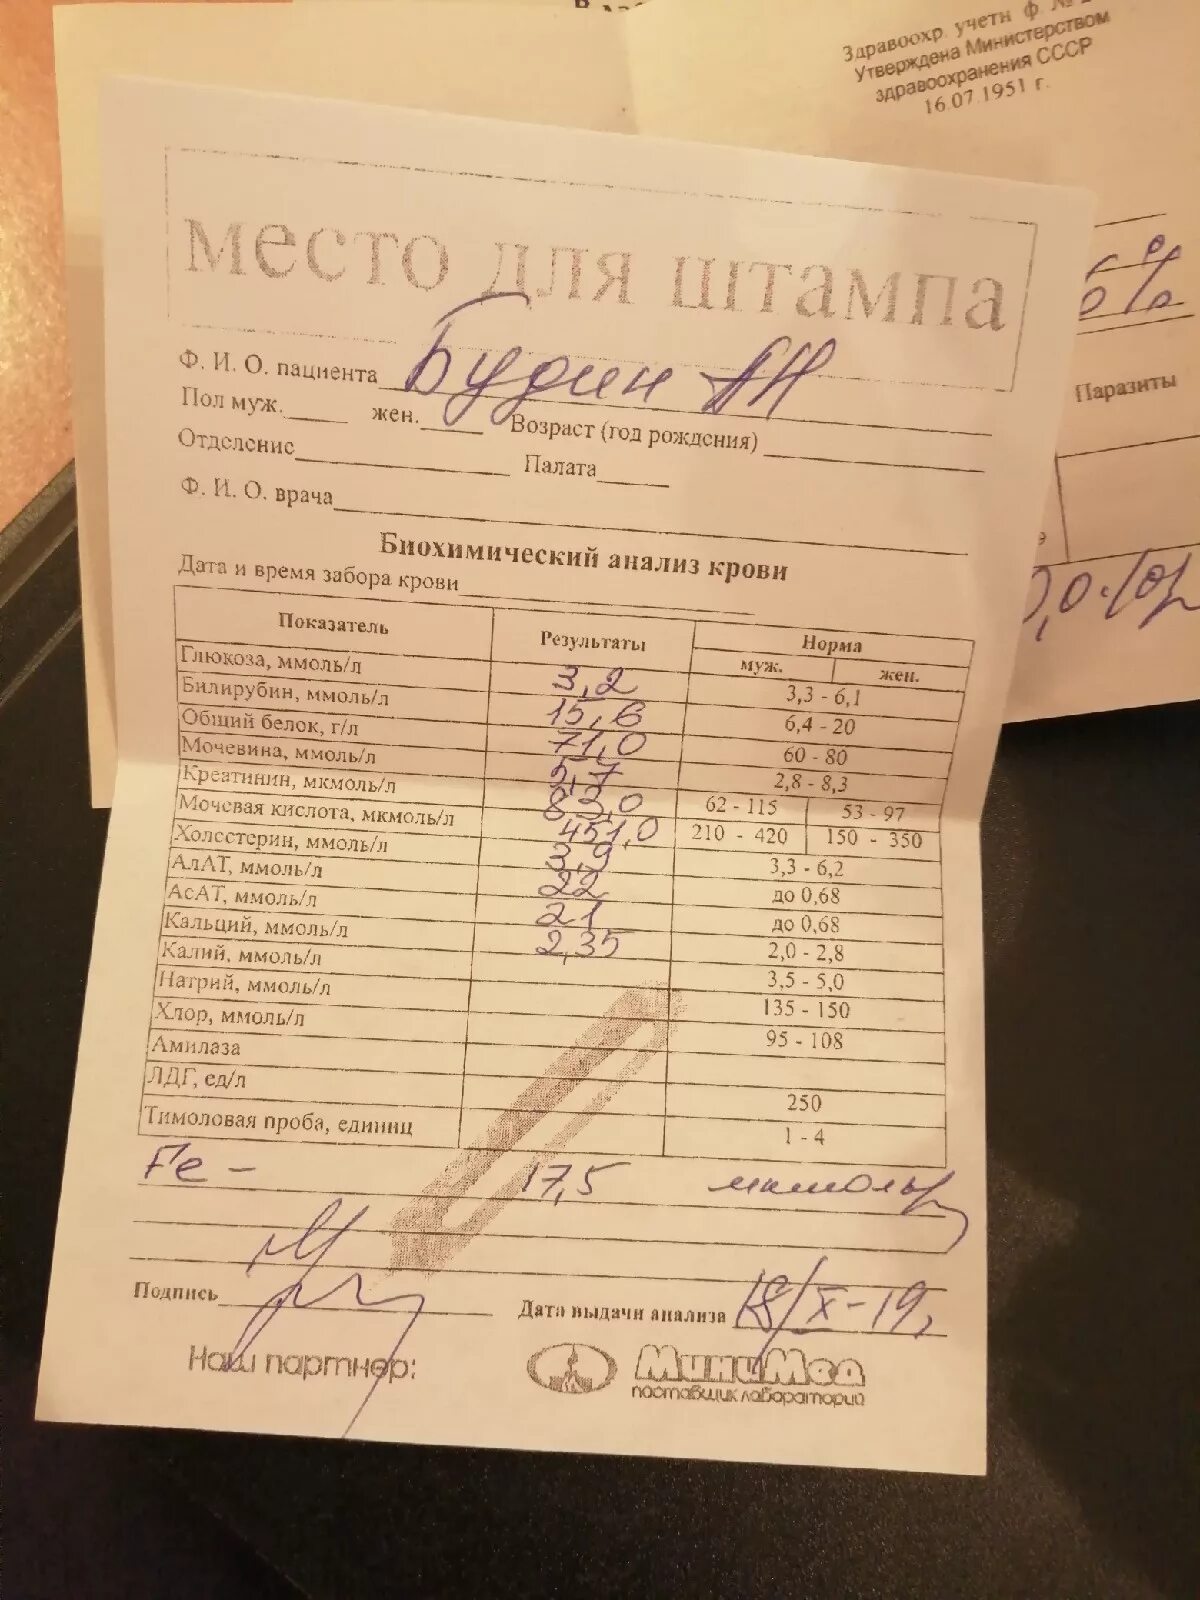 Здравоохр. учетн ф. №
Утверждена Министерством
здравоохранения СССР
16.07.1951 г.
место для штампа
Ф. И. О. пациента Будин АН
Пол муж. жен. Возраст (год рождения)
Отделение Палата
Ф. И. О. врача
Паразиты
Биохимический анализ крови
Дата и время забора крови
Показатель Результаты Норма
муж. жен.
Глюкоза, ммоль/л 3,2 3,3 - 6,1
Билирубин, ммоль/л 15,6 6,4 - 20
Общий белок, г/л 71,0 60 - 80
Мочевина, ммоль/л 5,7 2,8 - 8,3
Креатинин, мкмоль/л 83,0 62 - 115 53 - 97
Мочевая кислота, мкмоль/л 451,0 210 - 420 150 - 350
Холестерин, ммоль/л 3,9 3,3 - 6,2
АлАТ, ммоль/л 22 до 0,68
АсАТ, ммоль/л 21 до 0,68
Кальций, ммоль/л 2,35 2,0 - 2,8
Калий, ммоль/л 3,5 - 5,0
Натрий, ммоль/л 135 - 150
Хлор, ммоль/л 95 - 108
Амилаза
ЛДГ, ед/л 250
Тимоловая проба, единиц 1 - 4
Fe - 17,5
Подпись Дата выдачи анализа 18/X-19,
Наш партнер: МиниМед
поставщик лабораторий